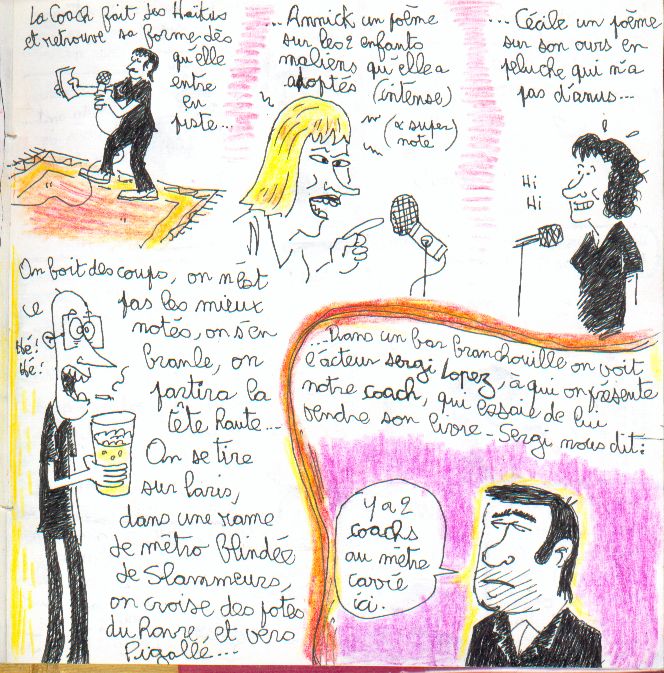 La Coach fait des Haïkus
et retrouve sa forme dès
qu'elle
entre
en
piste...
... Annick un poème
sur les 2 enfants
maliens qu'elle a
adoptés (intense)
(& super)
noté
... Cécile un poème
sur son ours en
peluche qui n'a
pas d'anus...
Hi
Hi
On boit des coups, on n'est
pas les mieux
notés, on s'en
branle, on
partira la
tête haute...
Hé!
Hé!
On se tire
sur Paris,
dans une rame
de métro blindée
de Slammeurs,
on croise des potes
du Havre, et vers
Pigalle...
...Dans un bar branchouille on voit
l'acteur sergi Lopez, à qui on présente
notre coach, qui essaie de lui
vendre son livre - Sergi nous dit:
y a 2
coachs
au mètre
carré
ici.